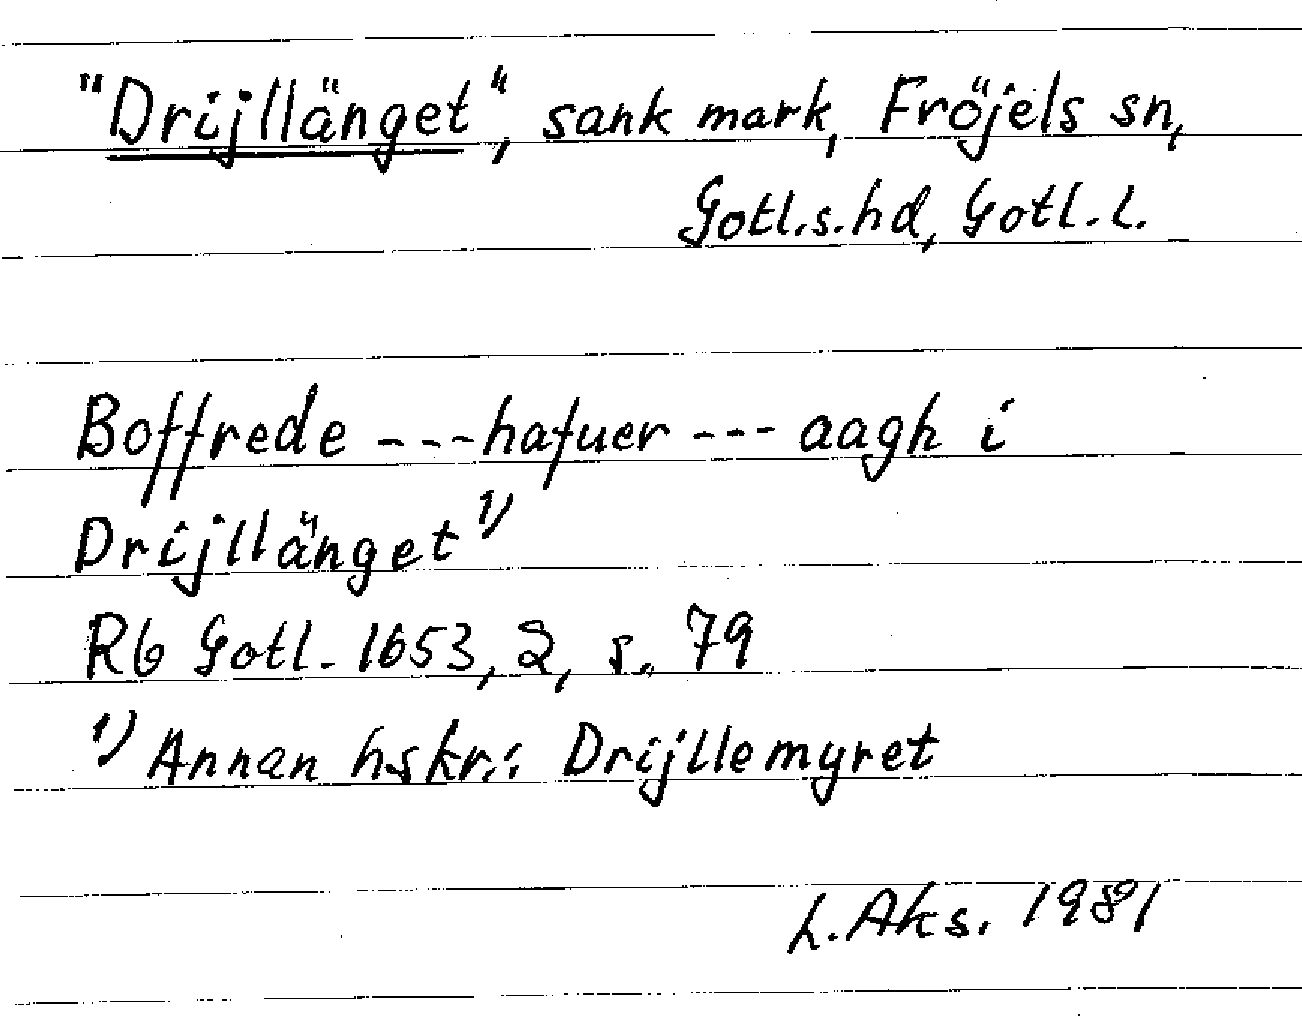 "Drijllänget", sank mark, Fröjels sn,
Gotl.s.hd, Gotl.l.
Boffrede ---hafuer --- aagh i
Drijllänget 1)
Rb Gotl. 1653, 2, s. 79
1) Annan hskr.: Drijllemyret
L. Aks. 1981